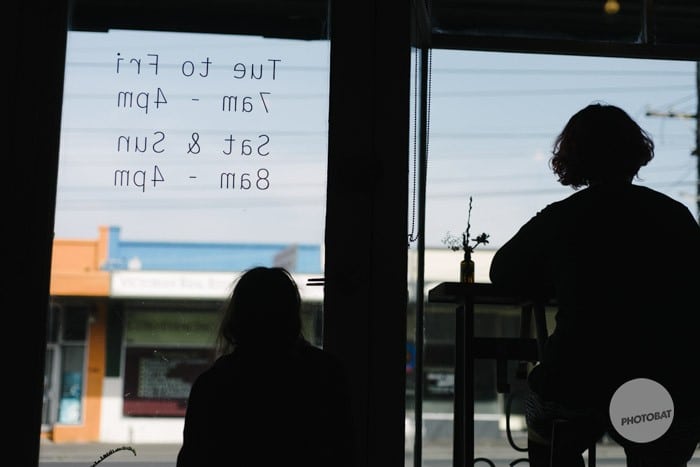 Tue to Fri
7am - 4pm
Sat & Sun
8am - 4pm
PHOTOBAT